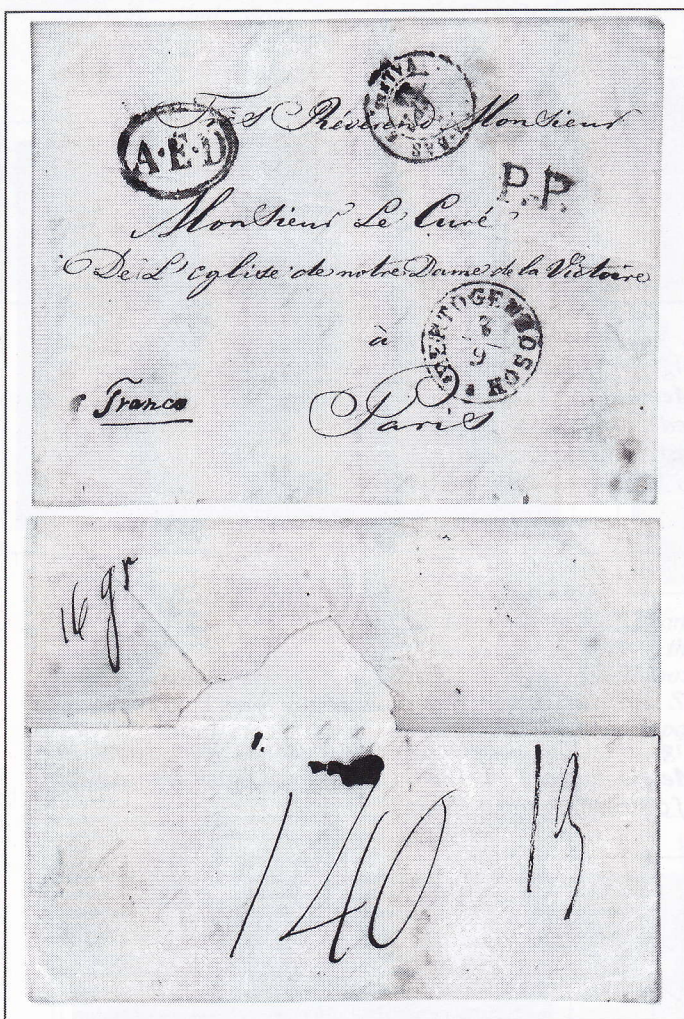 Très Révérend Monsieur
A·E·D
P.P.
Monsieur Le Curé
De L'eglise de notre Dame de la Victoire
à
'SHERTOGENBOSCH
7
9
Franco
Paris
16 gr
140